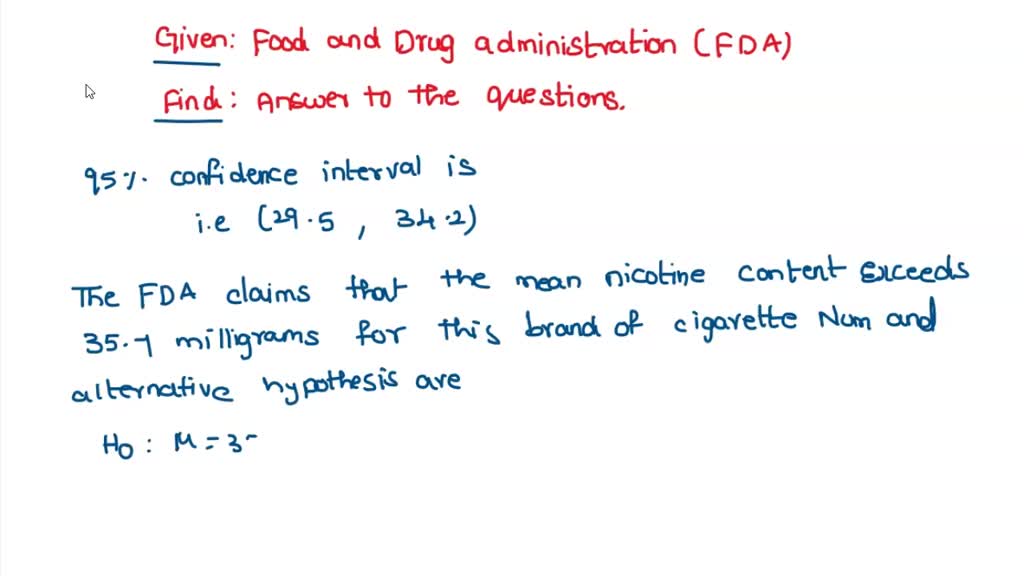 Given: Food and Drug administration (FDA)
Find: Answer to the questions.
95%. confidence interval is
i.e (29.5, 34.2)
The FDA claims that the mean nicotine content Exceeds
35.7 milligrams for this brand of cigarette Num and
alternative hypothesis are
H0: M=3